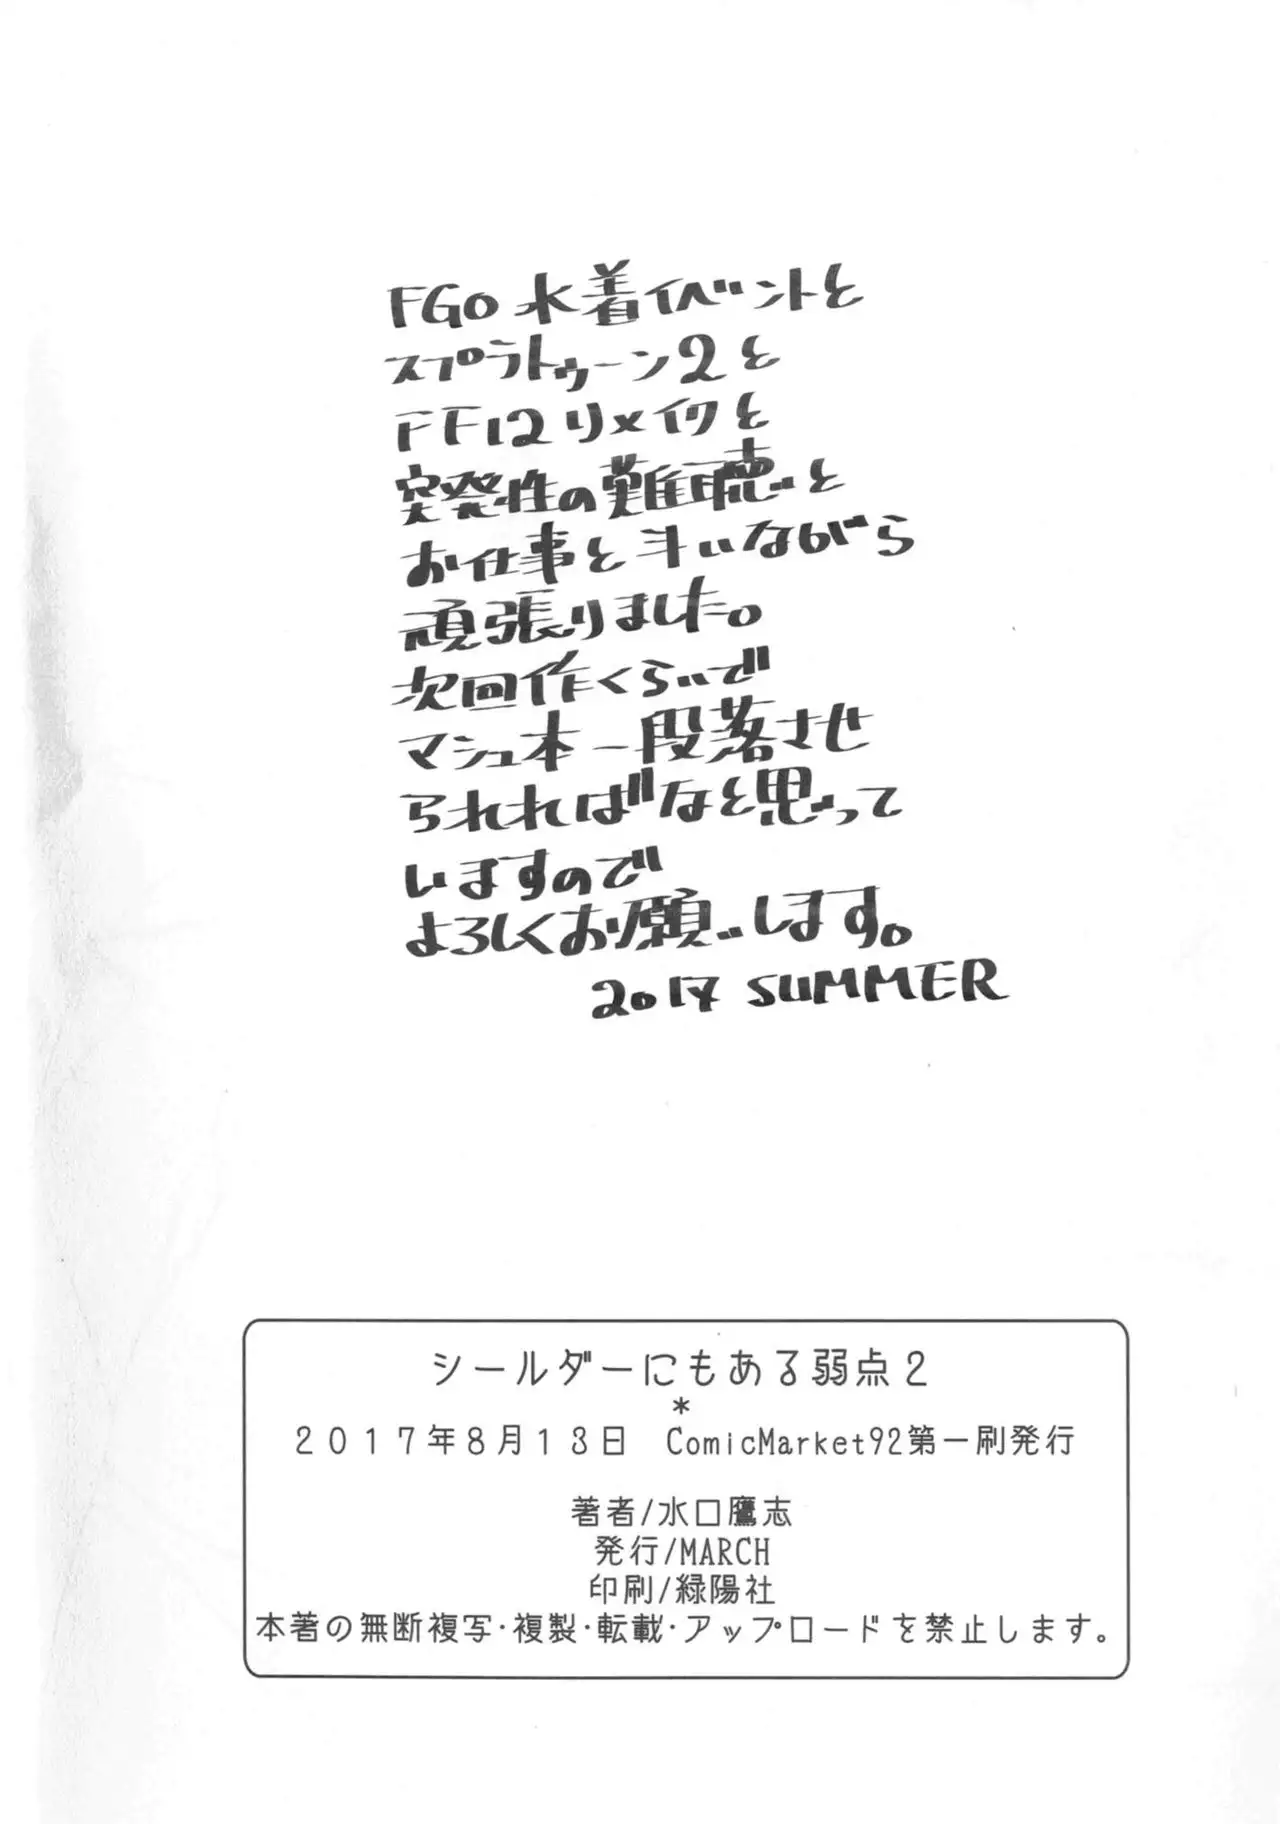 FGO水着イベントと
スプラトゥーン2と
FF12リメイクと
突発性の難聴と
お仕事と斗いながら
頑張りました。
次回作くらいで
マシュ本一段落させ
られればなと思って
いますので
よろしくお願いします。
2017 SUMMER
シールダーにもある弱点2
*
2017年8月13日 ComicMarket92第一刷発行
著者/水口鷹志
発行/MARCH
印刷/緑陽社
本著の無断複写・複製・転載・アップロードを禁止します。